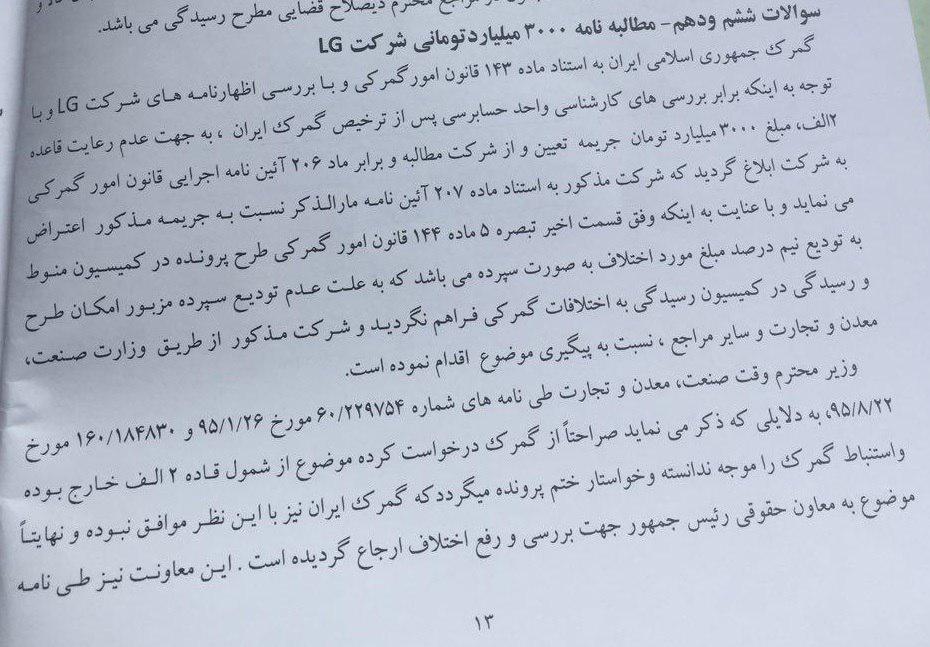 در مراجع محترم ذیصلاح قضایی مطرح رسیدگی می باشد.
سوالات ششم ودهم- مطالبه نامه ۳۰۰۰ میلیاردتومانی شرکت LG
گمرک جمهوری اسلامی ایران به استناد ماده ۱۴۳ قانون امورگمرکی و با بررسی اظهارنامه های شرکت LG و با
توجه به اینکه برابر بررسی های کارشناسی واحد حسابرسی پس از ترخیص گمرک ایران ، به جهت عدم رعایت قاعده
۲الف، مبلغ ۳۰۰۰ میلیارد تومان جریمه تعیین و از شرکت مطالبه و برابر ماد ۲۰۶ آئین نامه اجرایی قانون امور گمرکی
به شرکت ابلاغ گردید که شرکت مذکور به استناد ماده ۲۰۷ آئین نامه مارالذکر نسبت به جریمه مذکور اعتراض
می نماید و با عنایت به اینکه وفق قسمت اخیر تبصره ۵ ماده ۱۴۴ قانون امور گمرکی طرح پرونده در کمیسیون منوط
به تودیع نیم درصد مبلغ مورد اختلاف به صورت سپرده می باشد که به علت عدم تودیع سپرده مزبور امکان طرح
و رسیدگی در کمیسیون رسیدگی به اختلافات گمرکی فراهم نگردید و شرکت مذکور از طریق وزارت صنعت،
معدن و تجارت و سایر مراجع ، نسبت به پیگیری موضوع اقدام نموده است.
وزیر محترم وقت صنعت، معدن و تجارت طی نامه های شماره ۶۰/۲۲۹۷۵۴ مورخ ۹۵/۱/۲۶ و ۱۶۰/۱۸۴۸۳۰ مورخ
۹۵/۸/۲۲، به دلایلی که ذکر می نماید صراحتاً از گمرک درخواست کرده موضوع از شمول قاده ۲ الف خارج بوده
واستنباط گمرک را موجه ندانسته وخواستار ختم پرونده میگرددکه گمرک ایران نیز با این نظر موافق نبوده و نهایتاً
موضوع به معاون حقوقی رئیس جمهور جهت بررسی و رفع اختلاف ارجاع گردیده است . این معاونت نیز طی نامه
۱۳